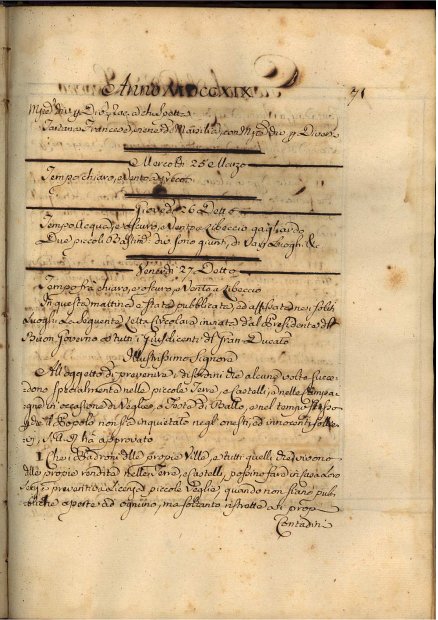 Anno MDCCXIX
71
Tartana Francese, viene da Marsilia, con
Mercoldi 25 Marzo
Tempo chiaro, e Vento a Grecos
Giovedi 26 Detto
Tempo Acqua, e oscuro, e Vento a Libeccio gagliardo
Due piccoli Bastim.ti sono giunti, di Varj Luoghi &
Venerdi 27 Detto
Tempo frà chiaro, e oscuro, e Vento a Libeccio
In questa mattina è stata pubblicata, ed affissata ne soliti
Luoghi La Seguente Lettera Circolare inviata dal Presidente del
Buon Governo a tutti i Giusdicenti del Gran Ducato
Illustrissimo Signore
All'oggetto di prevenire i disordini che alcune volte succe-
dono specialmente nelle piccole Terre, e Castelli, e nelle Campa-
gne in occasione di Veglie, e Feste di Ballo, e nel tempo stesso
che il Popolo non sia inquietato negl' onesti, ed innocenti solli-
evi, S.A.R. hà approvato
1 Che i Padroni delle proprie Ville, e tutti quelli che vivono
delle proprie rendite nelle Terre, e Castelli, possino fare in Casa Loro
senza preventiva Licenza piccole Veglie, quando non siano pub-
bliche aperte ad ognuno, ma soltanto ristrette a i proprj
Contadini